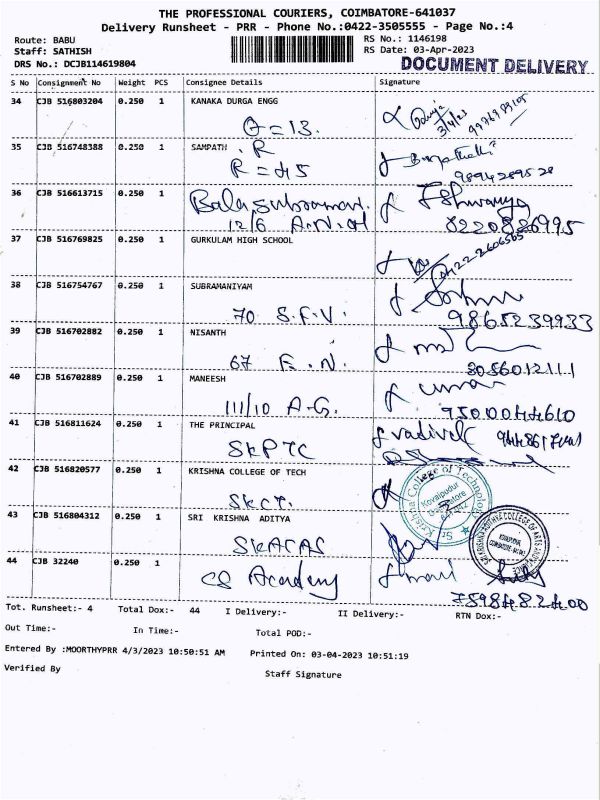 THE PROFESSIONAL COURIERS, COIMBATORE-641037
Delivery Runsheet - PRR - Phone No.:0422-3505555 - Page No.:4
Route: BABU RS No.: 1146198
Staff: SATHISH RS Date: 03-Apr-2023
DRS No.: DCJB114619804 DOCUMENT DELIVERY
S No Consignment No Weight PCS Consignee Details Signature
34 CJB 516803204 0.250 1 KANAKA DURGA ENGG
=13.
3/4/23
35 CJB 516748388 0.250 1 SAMPATH . R
R = 45
9894289528
36 CJB 516613715 0.250 1 Bala Subramani.
12/6 A.N.
8220826995
37 CJB 516769825 0.250 1 GURKULAM HIGH SCHOOL
0422-2606565
38 CJB 516754767 0.250 1 SUBRAMANIYAM
70 S.F.V.
9865239933
39 CJB 516702882 0.250 1 NISANTH
67 F.N.
8056012111
40 CJB 516702889 0.250 1 MANEESH
111/10 A.G.
9500044610
41 CJB 516811624 0.250 1 THE PRINCIPAL
SKPTC
Vadivel
42 CJB 516820577 0.250 1 KRISHNA COLLEGE OF TECH
SKCT.
Sri Krishna College of Technology
Kovaipudur
Coimbatore
43 CJB 516804312 0.250 1 SRI KRISHNA ADITYA
SKACAS
44 CJB 32240 0.250 1
CS Academy
7598482400
Tot. Runsheet:- 4 Total Dox:- 44 I Delivery:- II Delivery:- RTN Dox:-
Out Time:- In Time:- Total POD:-
Entered By :MOORTHYPRR 4/3/2023 10:50:51 AM Printed On: 03-04-2023 10:51:19
Verified By Staff Signature